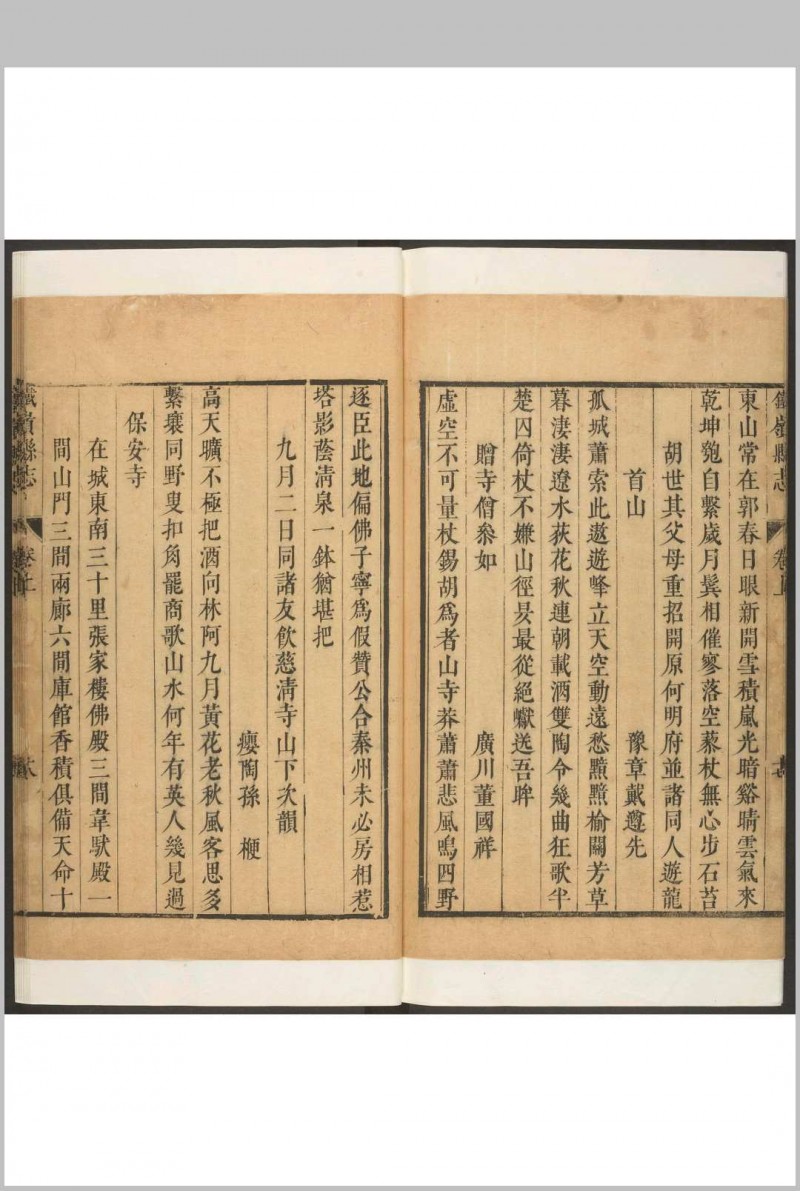 鐵嶺縣志 卷上
東山常在郭春日眼新開雪積嵐光暗谿晴雲氣來
乾坤匏自繫歲月鬂相催寥落空藜杖無心步石苔
胡世其父母重招開原何明府並諸同人遊龍
首山 豫章戴遵先
孤城蕭索此遨遊峰立天空動遠愁黯黯榆關芳草
暮淒淒遼水荻花秋連朝載酒雙陶令幾曲狂歌半
楚囚倚杖不嫌山徑昃最從絕巘送吾眸
贈寺僧叅如 廣川董國祥
虛空不可量杖錫胡為者山寺莽蕭蕭悲風鳴四野
逐臣此地偏佛子寧為假贊公合秦州未必房相惹
塔影蔭清泉一鉢猶堪把
九月二日同諸友飲慈清寺山下次韻
癭陶孫 楩
高天曠不極把酒向林阿九月黃花老秋風客思多
繫壤同野叟扣角罷商歌山水何年有英人幾見過
保安寺
在城東南三十里張家樓佛殿三間韋馱殿一
間山門三間兩廊六間庫館香積俱備天命十
鐵嶺縣志 卷上